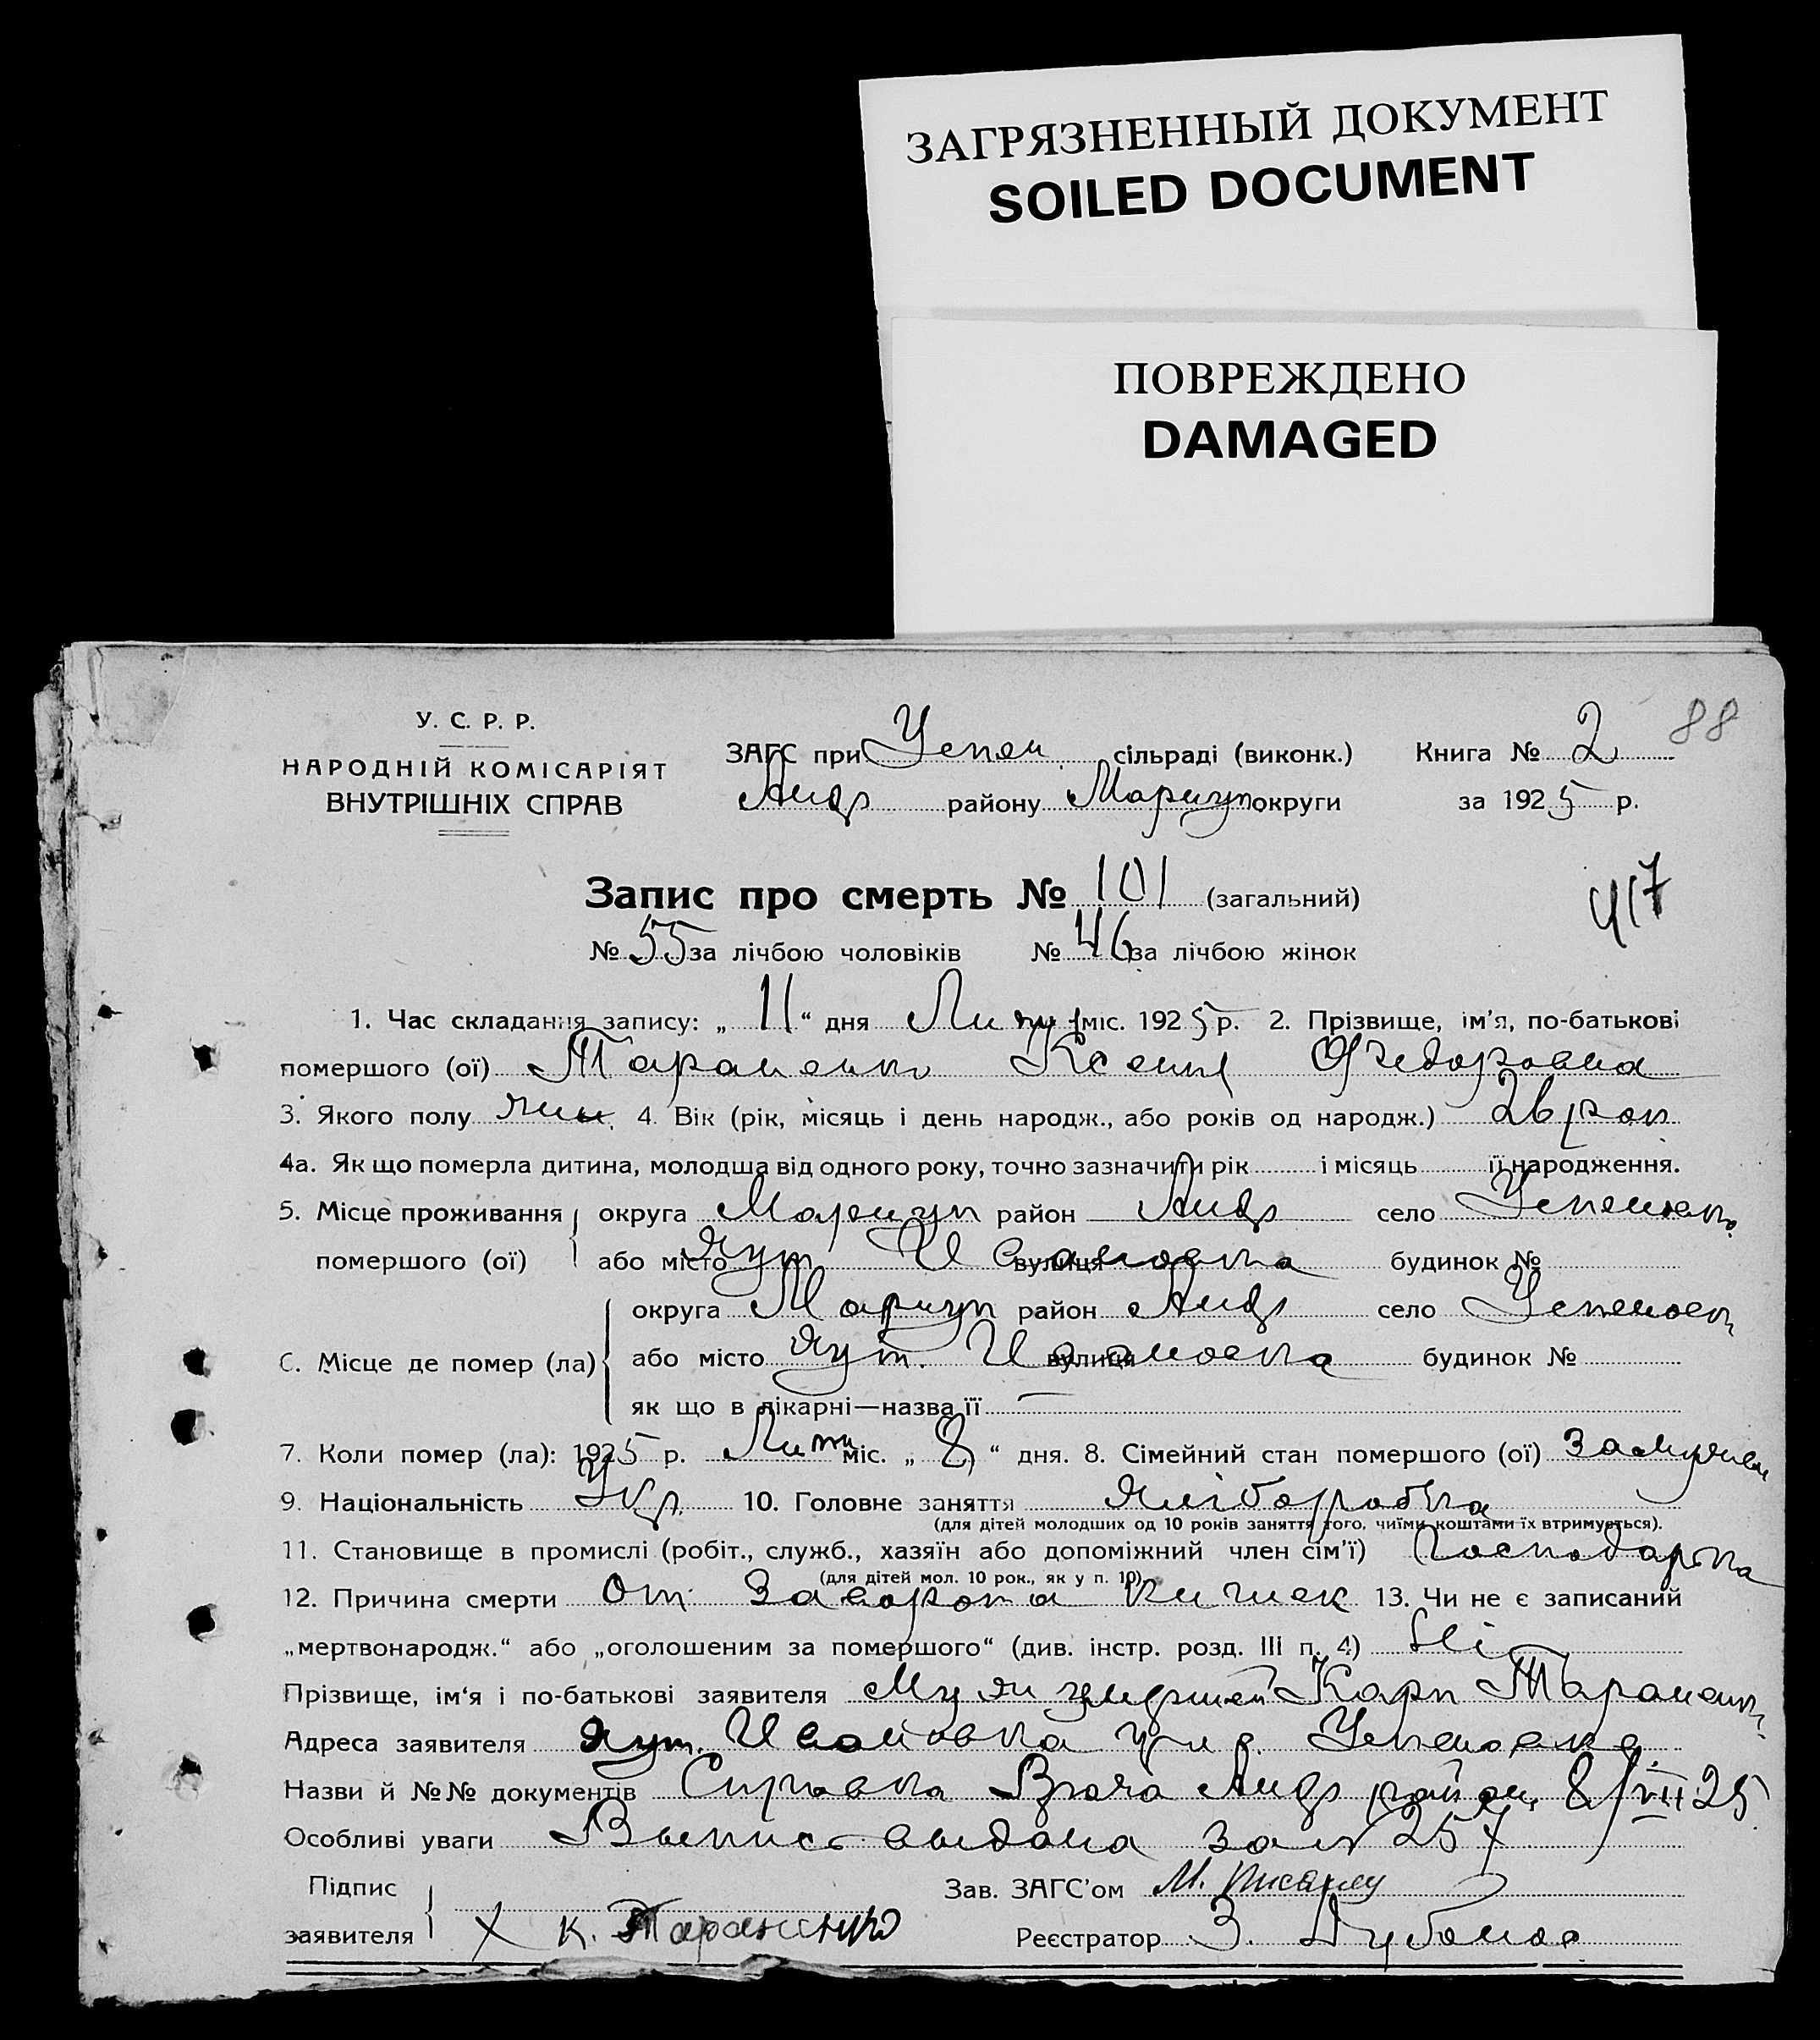 ЗАГРЯЗНЕННЫЙ ДОКУМЕНТ
SOILED DOCUMENT
ПОВРЕЖДЕНО
DAMAGED
88
У. С. Р. Р.
НАРОДНІЙ КОМІСАРІЯТ
ВНУТРІШНІХ СПРАВ
ЗАГС при Успен. сільраді (виконк.) Книга № 2
Андр району Мариуп округи за 1925 р.
Запис про смерть № 101 (загальний)
417
№ 55 за лічбою чоловіків № 46 за лічбою жінок
1. Час складання запису: „ 11 “ дня міс. 1925 р. 2. Прізвище, ім'я, по-батькові
помершого (ої) Тараненко Ксения Фчедоровна
3. Якого полу жін. 4. Вік (рік, місяць і день народж., або років од народж.) рок
4а. Як що померла дитина, молодша від одного року, точно зазначити рік і місяць її народження.
5. Місце проживання округа Мариуп район Андр село
помершого (ої) або місто хут вулиця будинок №
округа Мариуп район Андр село
С. Місце де помер (ла) або місто хут. вулиця будинок №
як що в лікарні—назва її —
7. Коли помер (ла): 1925 р. міс. „ 8 “ дня. 8. Сімейний стан помершого (ої)
9. Національність Укр. 10. Головне заняття Хліборобка
(для дітей молодших од 10 років заняття того, чиїми коштами їх втримується).
11. Становище в промислі (робіт., служб., хазяїн або допоміжний член сім'ї) Господарка
(для дітей мол. 10 рок., як у п. 10)
12. Причина смерти От Заворота кишек 13. Чи не є записаний
„мертвонародж.“ або „оголошеним за помершого“ (див. інстр. розд. III п. 4) Ні
Прізвище, ім‘я і по-батькові заявителя Муж умершей Карп Тараненко
Адреса заявителя хут.
Назви й №№ документів Справка Врача Андр район 8/VII 25
Особливі уваги Выпись выдана за № 257
Підпис
заявителя X К. Тараненко
Зав. ЗАГС'ом М.
Реєстратор З.